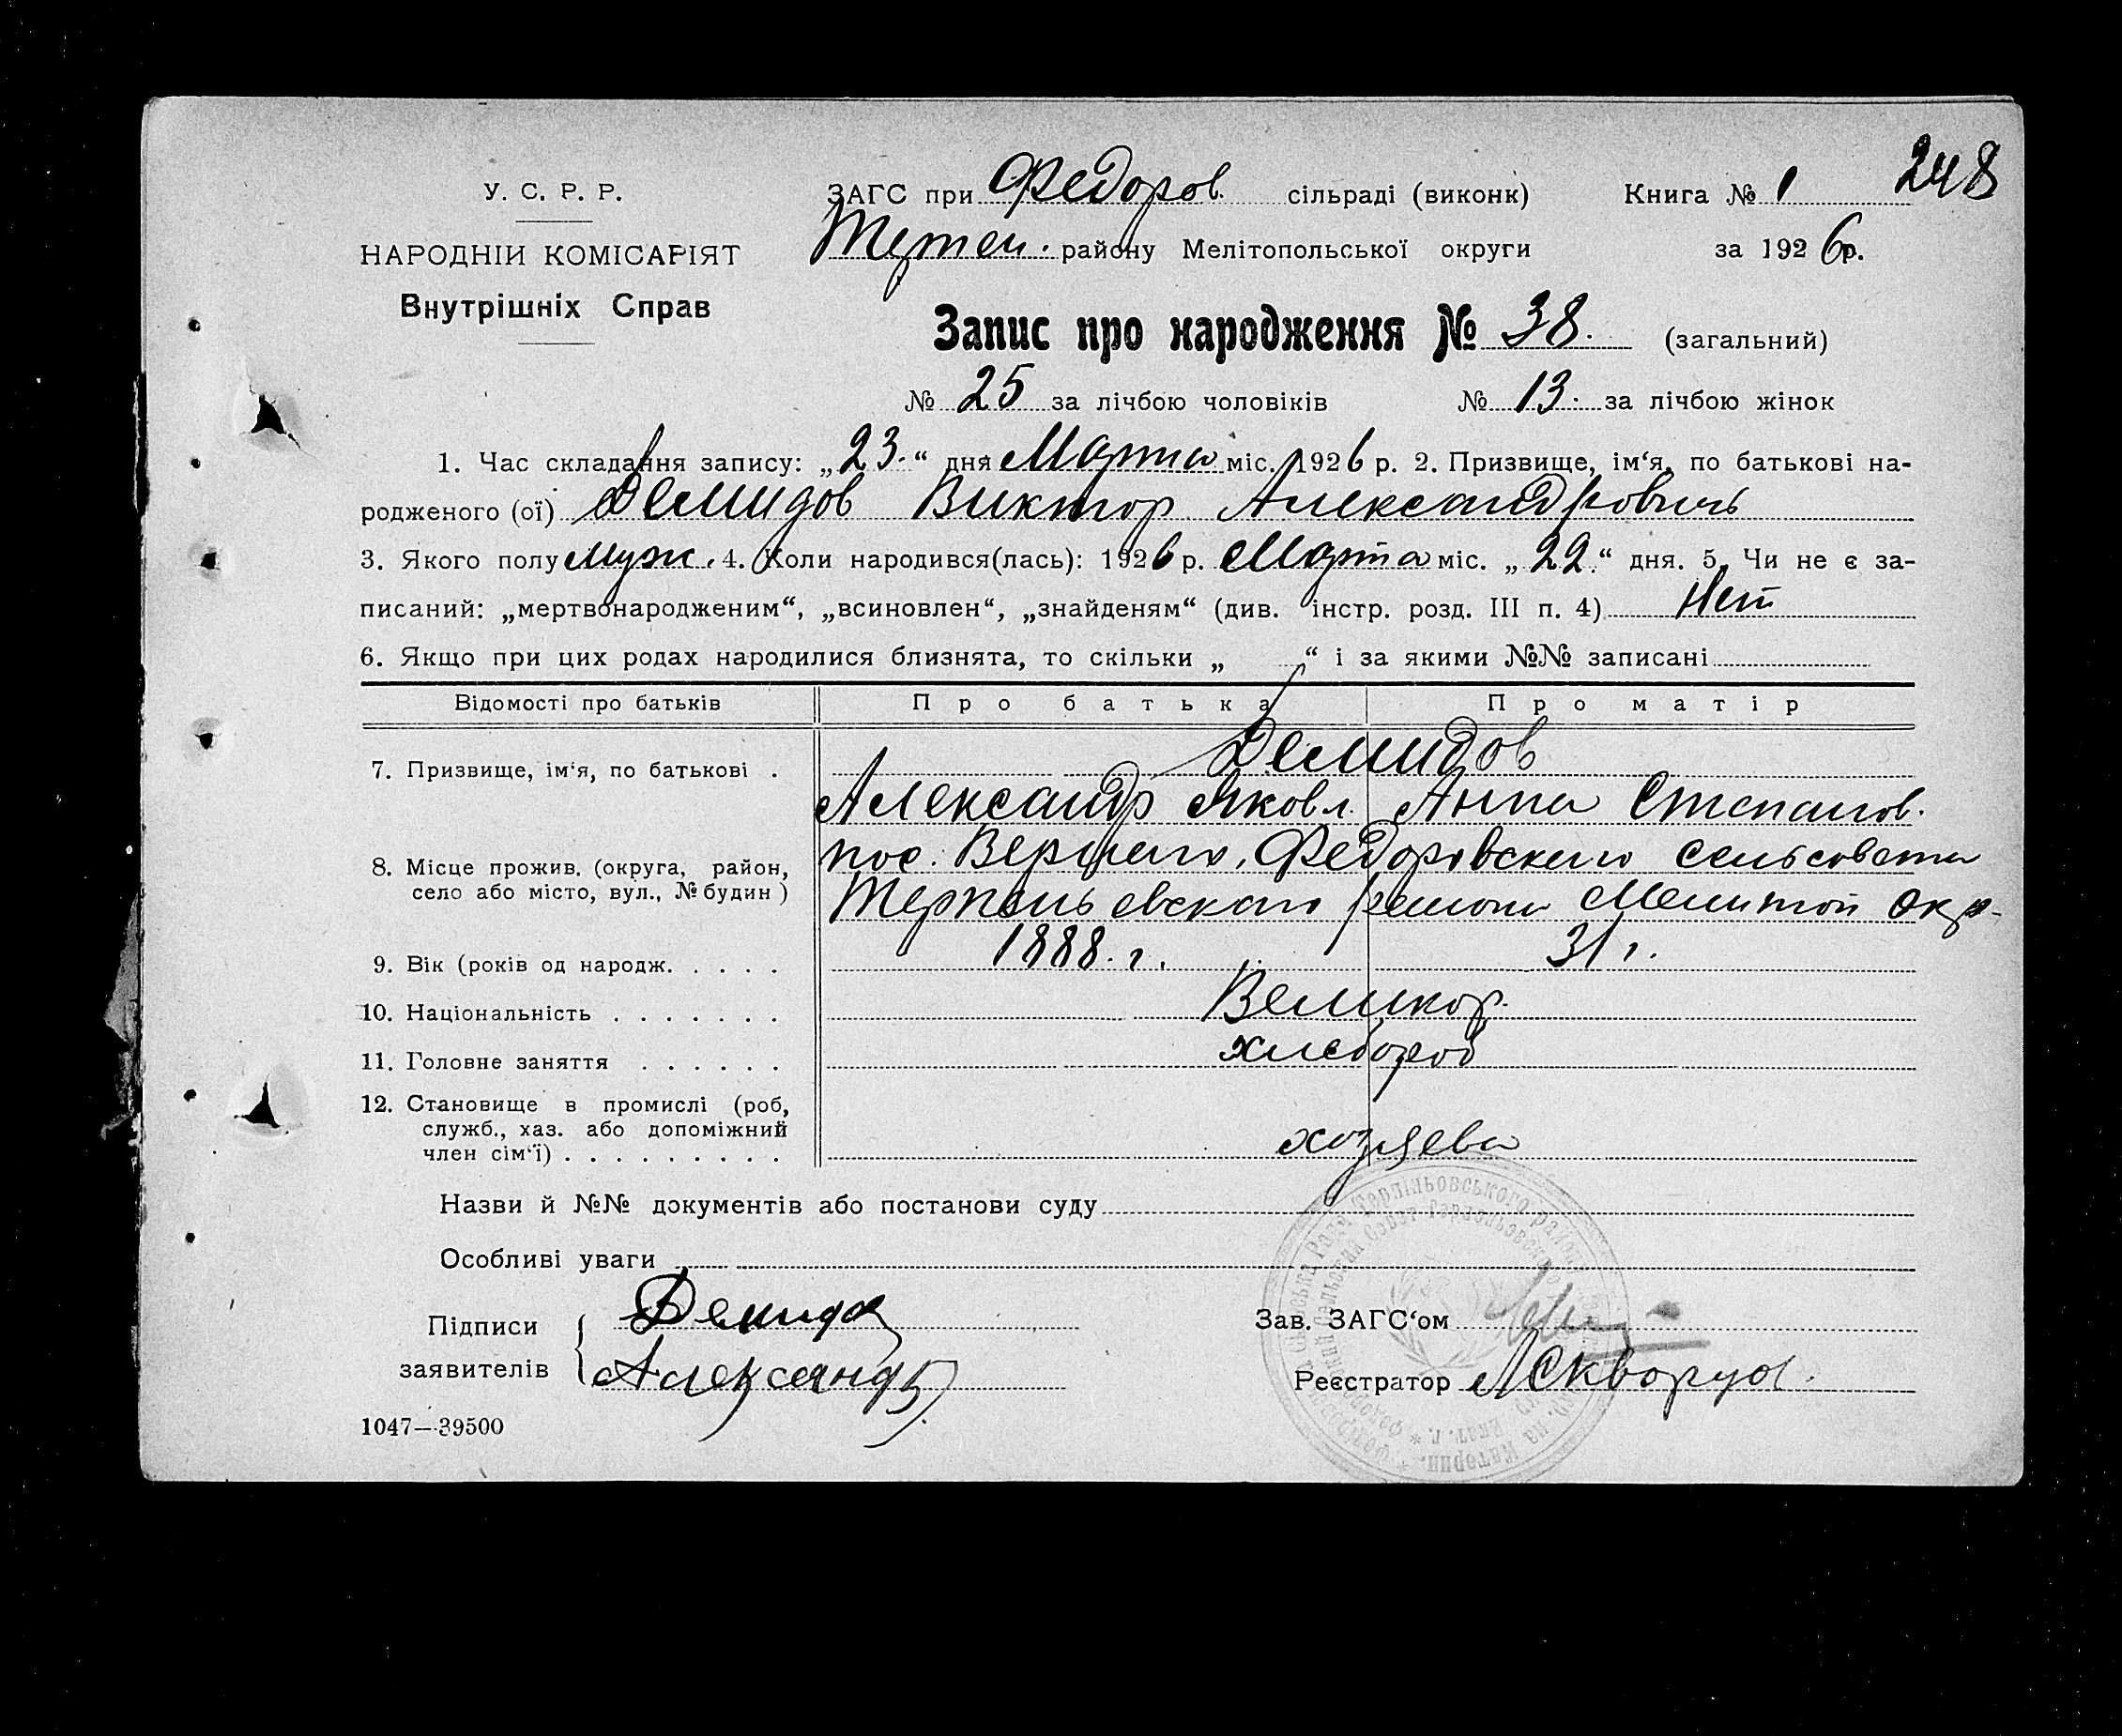 248
У. С. Р. Р.
НАРОДНІЙ КОМІСАРІЯТ
Внутрішніх Справ
ЗАГС при Федоров. сільраді (виконк) Книга № 1
району Мелітопольської округи за 1926р.
Запис про народження № 38. (загальний)
№ 25 за лічбою чоловіків № 13. за лічбою жінок
1. Час складання запису: „23.“ дня Марта міс. 1926 р. 2. Призвище, ім‘я, по батькові на-
родженого (ої) Демидов Виктор Александровичь
3. Якого полу муж. 4. Коли народився(лась): 1926 р. Марта міс. „22.“ дня. 5. Чи не є за-
писаний: „мертвонародженим“, „всиновлен“, „знайденям“ (див. інстр. розд. III п. 4) Нет
6. Якщо при цих родах народилися близнята, то скільки „ “ і за якими №№ записані
Відомості про батьків Про батька Про матір
7. Призвище, ім‘я, по батькові . Демидов
Александр Яковл. Анна Степанов.
8. Місце прожив. (округа, район,
село або місто, вул., № будин)
пос. Федоровского сельсовета
Терпеньевского района Мелитоп Окр.
9. Вік (років од народж. . . . . 1888. г. 31 г.
10. Національність . . . . . . . Великор.
11. Головне заняття . . . . . . хлебороб
12. Становище в промислі (роб,
служб., хаз. або допоміжний
член сім‘ї) . . . . . . . . . хозяева
Назви й №№ документів або постанови суду
Особливі уваги
Підписи заявителів Демидов
Александр
Зав. ЗАГС‘ом
Реєстратор Скворцов.
1047—39500